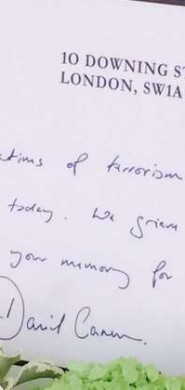 10 DOWNING ST
LONDON, SW1A
tims of terrorism
today. We grieve
your memory for
David Cameron.